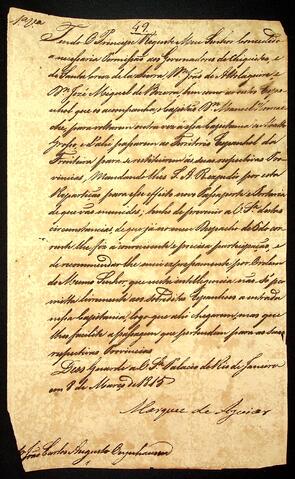 49
Tendo o Principe Regente Meu Senhor concedido
a necessaria permissão aos Governadores de Chiquitos e
de Santa Cruz de la Sierra, Dn. José de
Dn. José Miguel de Becerra, bem como ao outro Espa-
nhol que os acompanha, Capitão Dn. Manuel
para voltarem outra vez a essa Capitania de Matto
Grosso, e d'ali passarem ao Territorio Espanhol da
Fronteira para se restituirem ás suas respectivas Pro-
vincias, Mandando lhes S. A. R. expedir por esta
Repartição para esse effeito seus Passaportes e Portaria
de que vão munidos; tenho de prevenir a V. Sa. destas
circunstancias, de que já em meu Despacho de 6 do cor-
rente lhe fiz a conveniente e precisa participação, e
de recommendar lhe mui expressamente por Ordem
do Mesmo Senhor, que nesta intelligencia não só per-
mitta livremente aos sobreditos Espanhoes a entrada
nessa Capitania, logo que ahi chegarem, mas que
lhes facilite a passagem que pertendem para as suas
respectivas Provincias.
Deos Guarde a V. Sa. Palacio do Rio de Janeiro
em 9 de Março de 1815
Marquez de Aguiar
João Carlos Augusto Oeynhausen